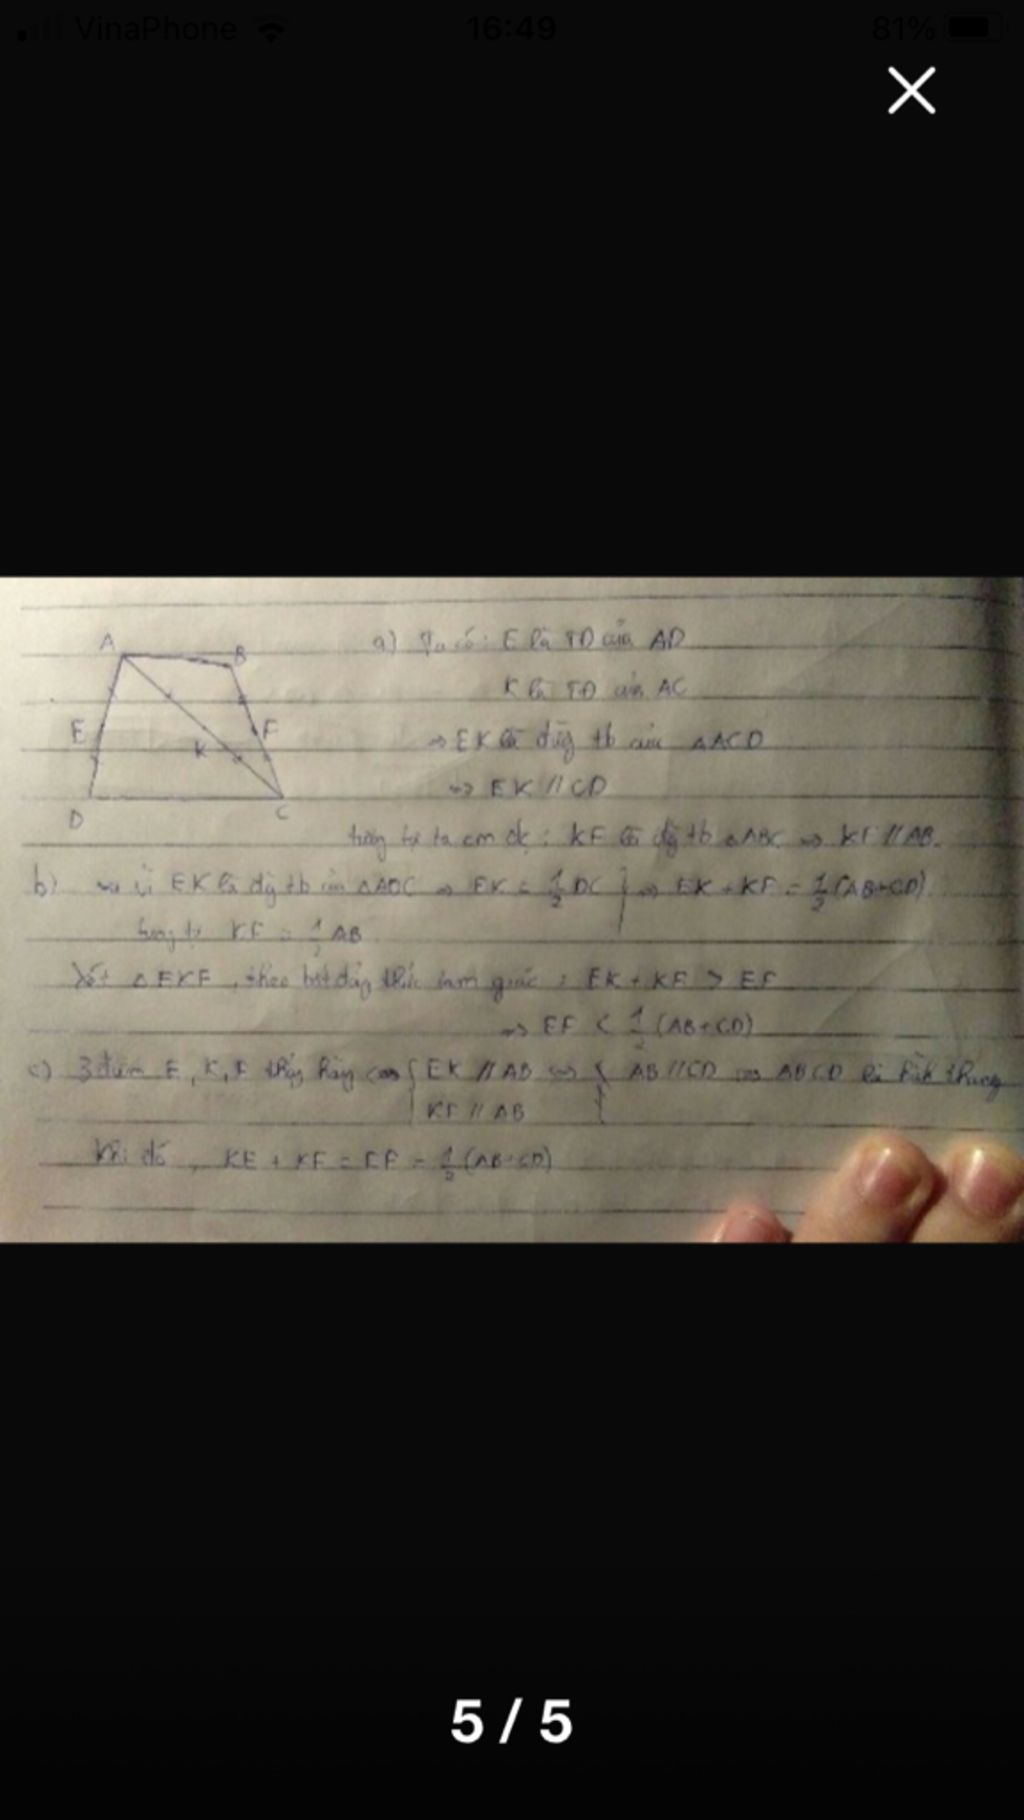 VinaPhone 16:49 81%
A B E F K D C
a) Ta có: E là TĐ của AD
K là TĐ của AC
⇒ EK là đg tb của △ACD
⇒ EK // CD
tương tự ta cm đc: KF là đg tb △ABC ⇒ KF // AB.
b) vì EK là đg tb của △ADC ⇒ EK = 1/2 DC } ⇒ EK + KF = 1/2 (AB+CD)
tương tự KF = 1/2 AB
Xét △EKF, theo bất đẳng thức tam giác: EK + KF > EF
⇒ EF < 1/2 (AB+CD)
c) 3 điểm E, K, F thẳng hàng ⇔ { EK // AB ⇔ { AB // CD ⇔ ABCD là hình thang
KF // AB
Khi đó, KE + KF = EF = 1/2 (AB+CD)
5 / 5